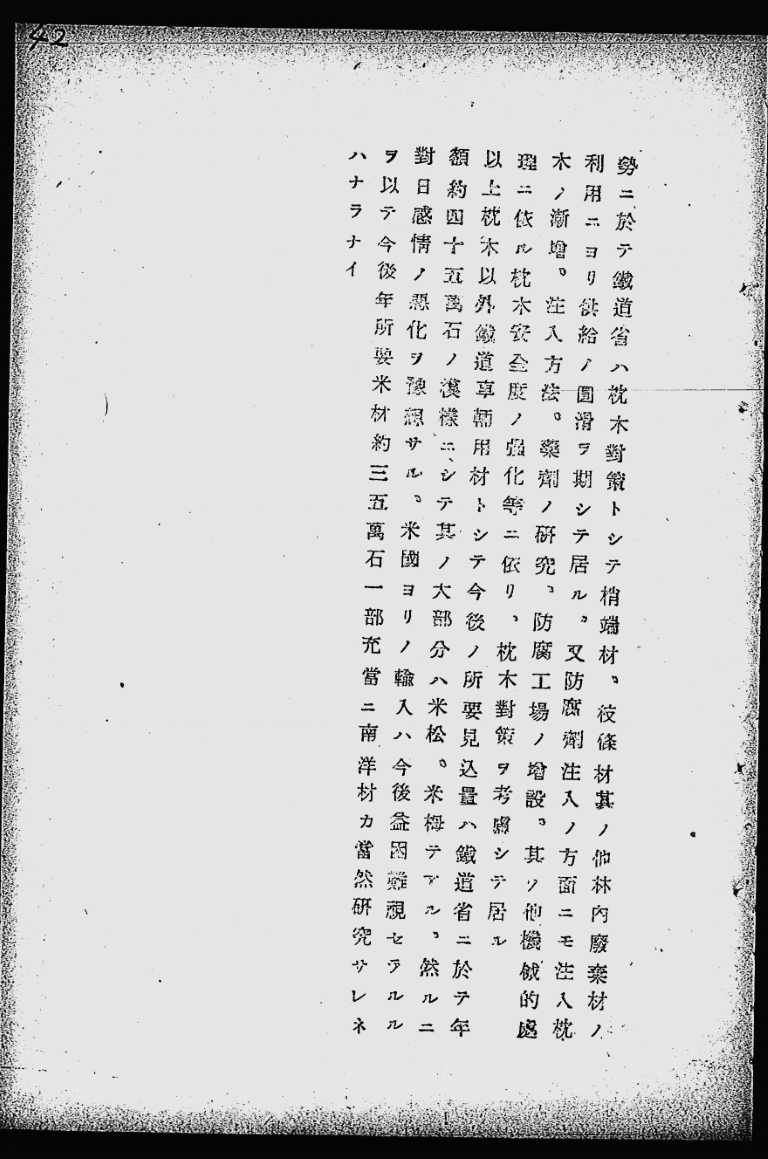 42
勢ニ於テ鐵道省ハ枕木對策トシテ梢端材、枝條材其ノ他林內廢棄材ノ
利用ニヨリ供給ノ圓滑ヲ期シテ居ル。又防腐劑注入ノ方面ニモ注入枕
木ノ漸增。注入方法。藥劑ノ硏究、防腐工場ノ增設。其ノ他機械的處
理ニ依ル枕木安全度ノ强化等ニ依リ、枕木對策ヲ考慮シテ居ル
以上枕木以外鐵道車輛用材トシテ今後ノ所要見込量ハ鐵道省ニ於テ年
額約四十五萬石ノ模樣ニシテ其ノ大部分ハ米松。米栂テアル、然ルニ
對日感情ノ惡化ヲ豫想サル、米國ヨリノ輸入ハ今後益困難視セラルル
ヲ以テ今後年所要米材約三五萬石一部充當ニ南洋材カ當然硏究サレネ
ハナラナイ